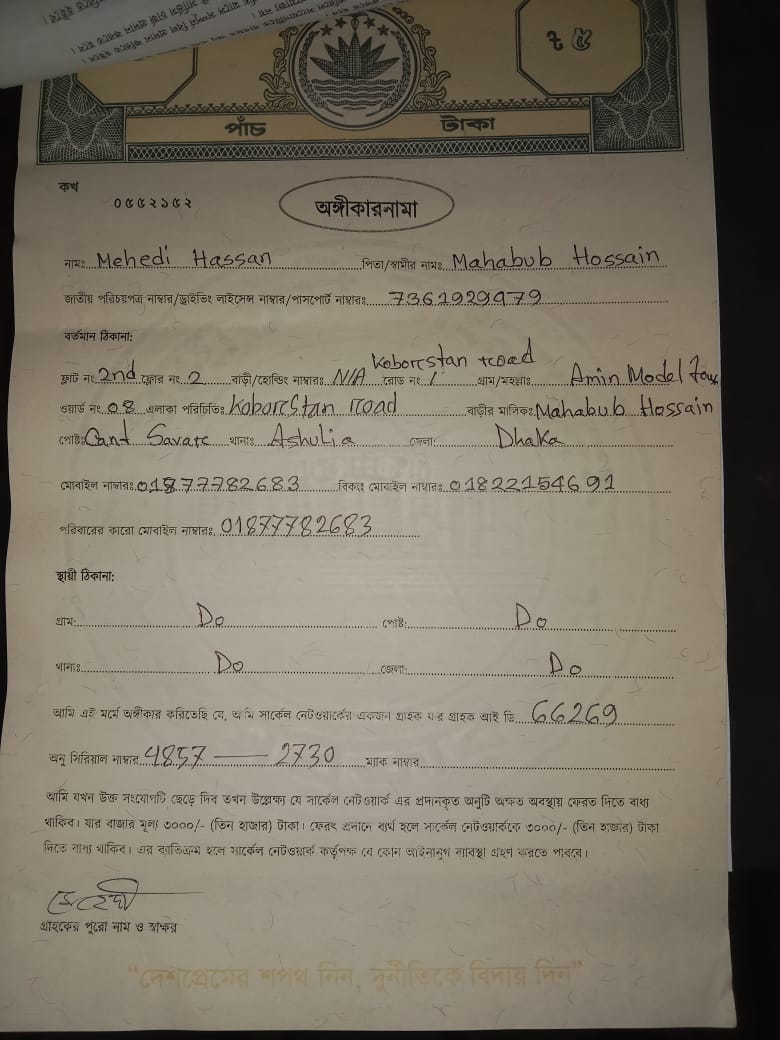 ৳ ৫
পাঁচ টাকা
কখ
০৫৫২১৫২
অঙ্গীকারনামা
নামঃ Mehedi Hassan পিতা/স্বামীর নামঃ Mahabub Hossain
জাতীয় পরিচয়পত্র নাম্বার/ড্রাইভিং লাইসেন্স নাম্বার/পাসপোর্ট নাম্বারঃ 7361929979
বর্তমান ঠিকানা:
ফ্লাট নং 2nd ফ্লোর নং 2 বাড়ী/হোল্ডিং নাম্বারঃ N/A রোড নং Koborstan road গ্রাম/মহল্লাঃ Amin Model
ওয়ার্ড নং 08 এলাকা পরিচিতিঃ Koborstan road বাড়ীর মালিকঃ Mahabub Hossain
পোষ্টঃ Cant Savar থানাঃ Ashulia জেলা: Dhaka
মোবাইল নাম্বারঃ 01877782683 বিকল্প মোবাইল নাম্বারঃ 01822154691
পরিবারের কারো মোবাইল নাম্বারঃ 01877782683
স্থায়ী ঠিকানা:
গ্রাম: Do পোষ্ট: Do
থানাঃ Do জেলা: Do
আমি এই মর্মে অঙ্গীকার করিতেছি যে, আমি সার্কেল নেটওয়ার্কের একজন গ্রাহক যার গ্রাহক আই ডি 66269
অনু সিরিয়াল নাম্বার 4857 — 2730 ম্যাক নাম্বার
আমি যখন উক্ত সংযোগটি ছেড়ে দিব তখন উল্লেক্ষ্য যে সার্কেল নেটওয়ার্ক এর প্রদানকৃত অনুটি অক্ষত অবস্থায় ফেরত দিতে বাধ্য
থাকিব। যার বাজার মূল্য ৩০০০/- (তিন হাজার) টাকা। ফেরৎ প্রদানে ব্যর্থ হলে সার্কেল নেটওয়ার্ককে ৩০০০/- (তিন হাজার) টাকা
দিতে বাধ্য থাকিব। এর ব্যতিক্রম হলে সার্কেল নেটওয়ার্ক কর্তৃপক্ষ যে কোন আইনানুগ ব্যাবস্থা গ্রহণ করতে পারবে।
মেহেদী
গ্রাহকের পুরো নাম ও স্বাক্ষর
“দেশপ্রেমের শপথ নিন, দুর্নীতিকে বিদায় দিন”